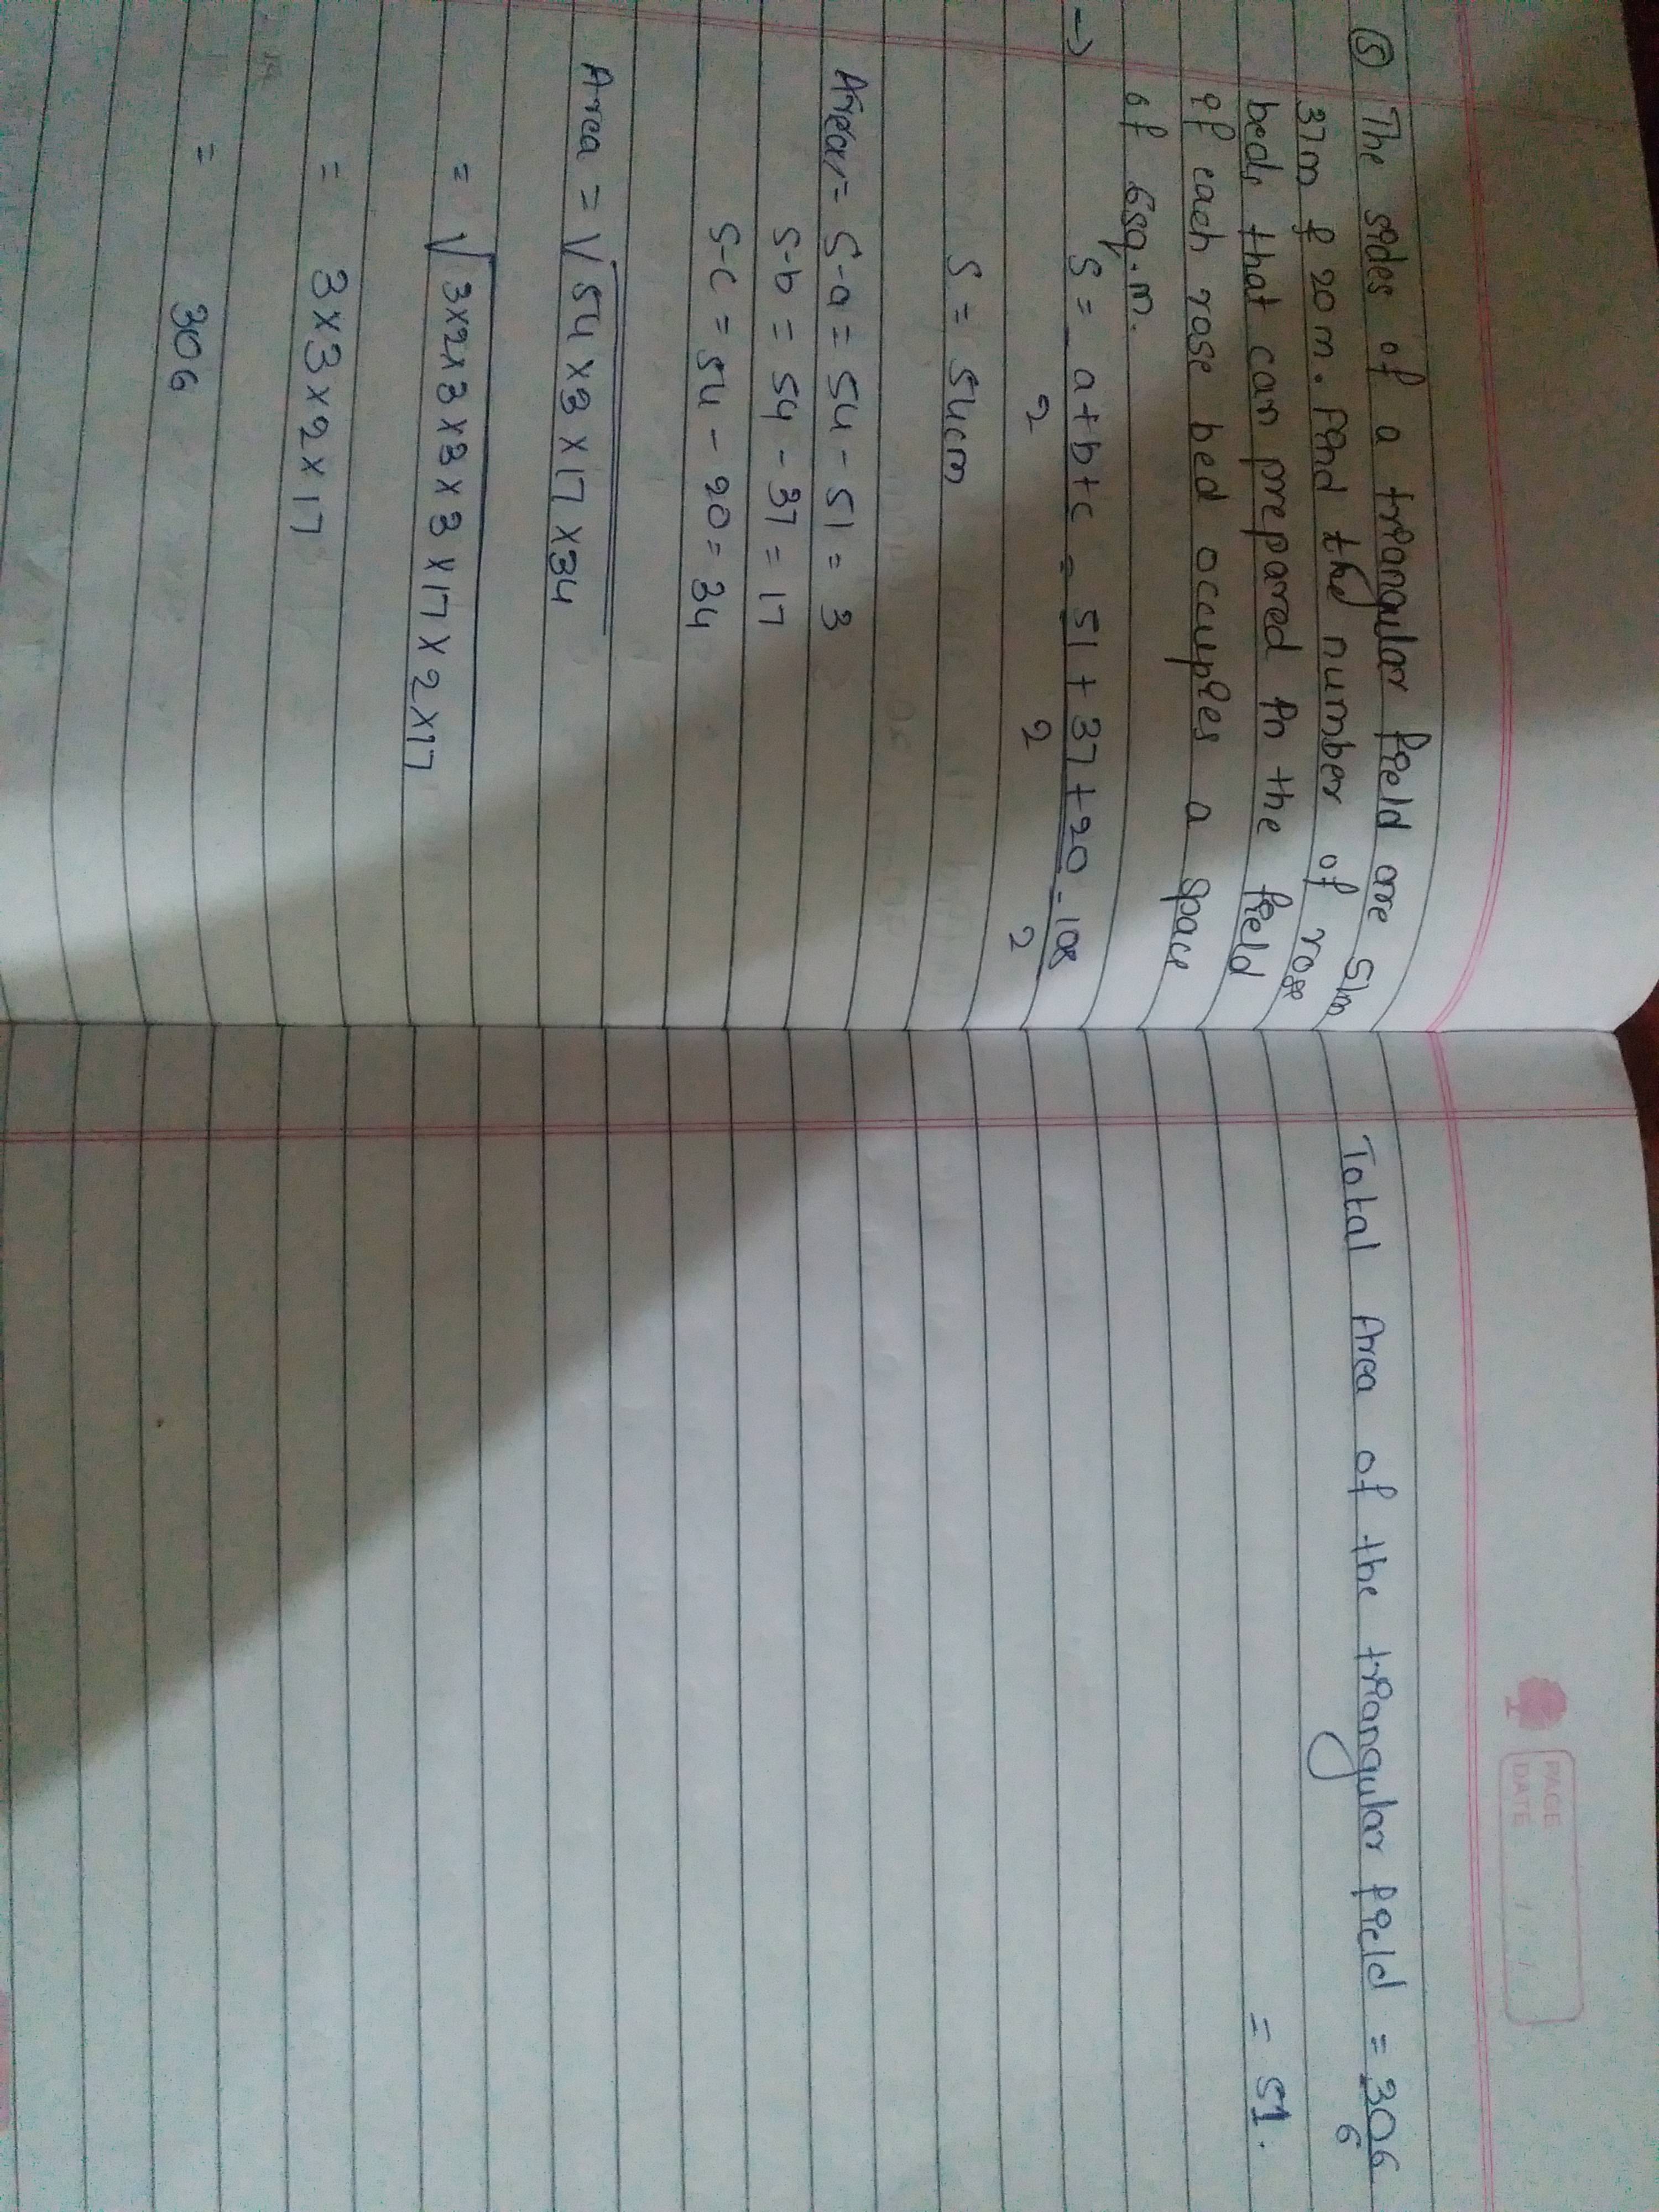 ⑤ The sides of a triangular field are 51m
37m & 20m. Find the number of rose
beds that can prepared in the field
of each rose bed occupies a space
of 6sq.m.
→ S = a+b+c/2 = 51+37+20/2 = 108/2
S = 54cm
Area = S-a = 54-51 = 3
S-b = 54-37 = 17
S-c = 54-20 = 34
Area = √54×3×17×34
= √3×2×3×3×3×17×2×17
= 3×3×2×17
= 306
PAGE
DATE
Total Area of the triangular field = 306/6
= 51.